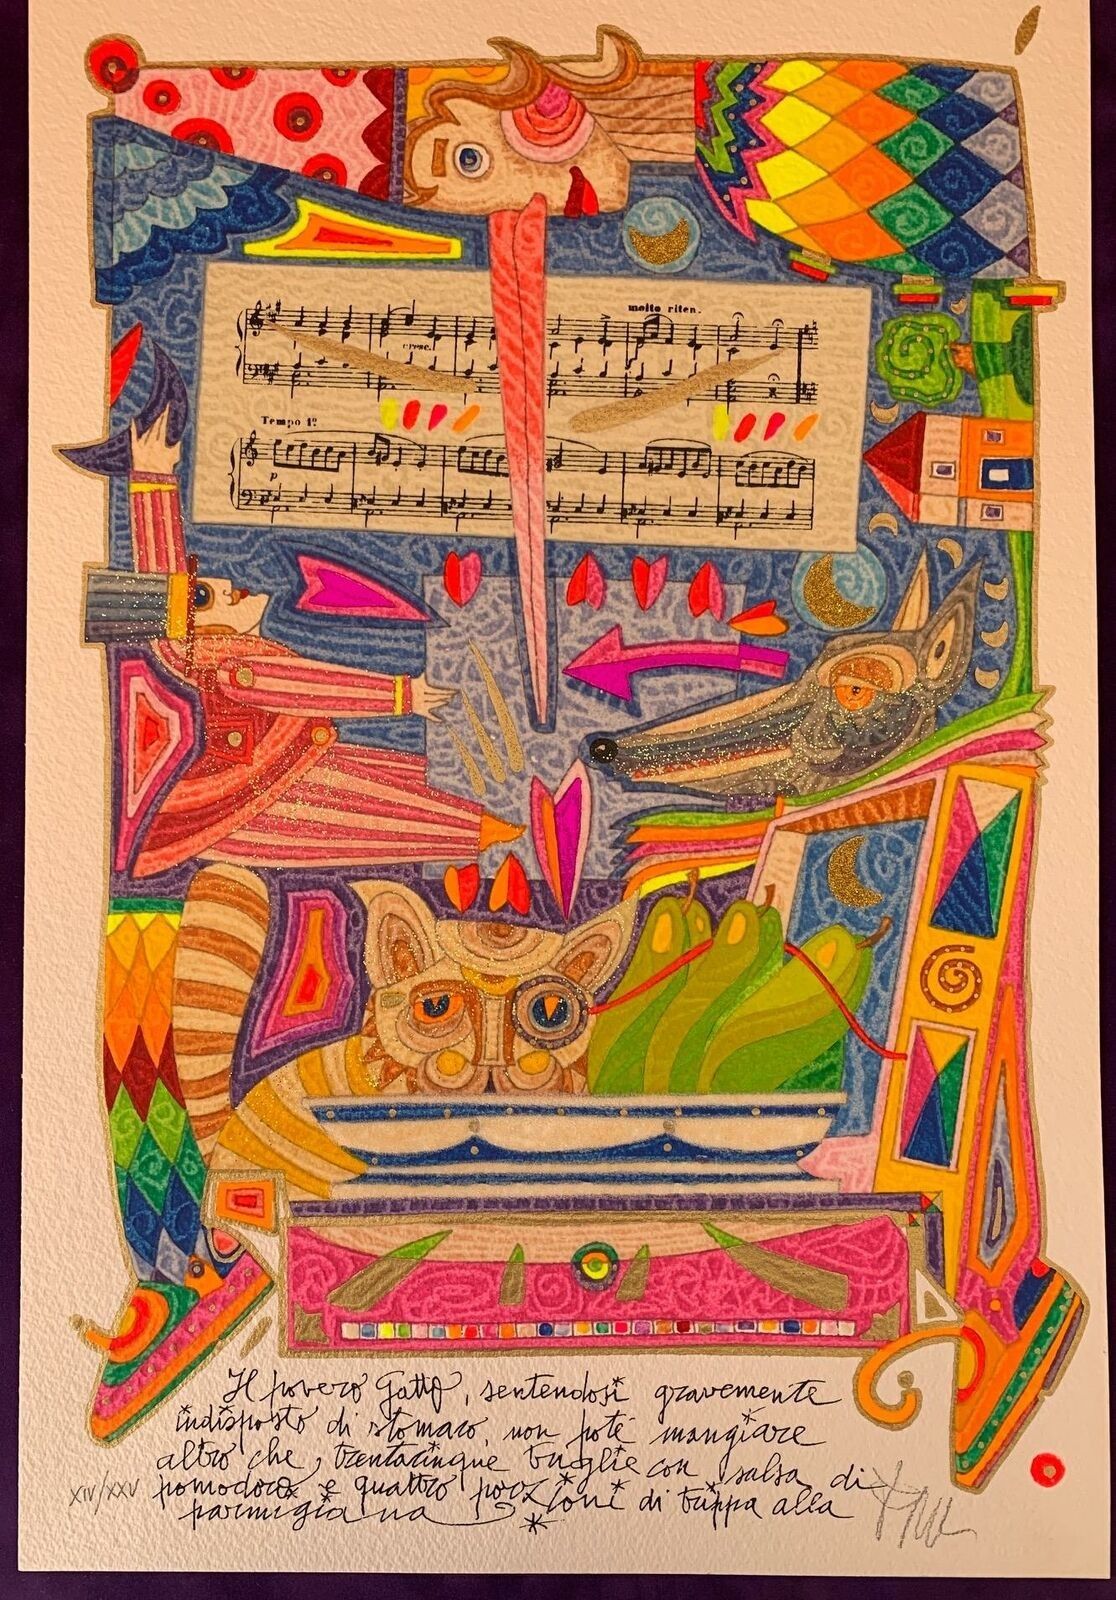 molto riten.
cresc.
Tempo 1º
p
Il povero Gatto, sentendosi gravemente
indisposto di stomaco, non poté mangiare
altro che trentacinque triglie con salsa di
pomodoro e quattro porzioni di trippa alla
parmigiana
XIV/XXV